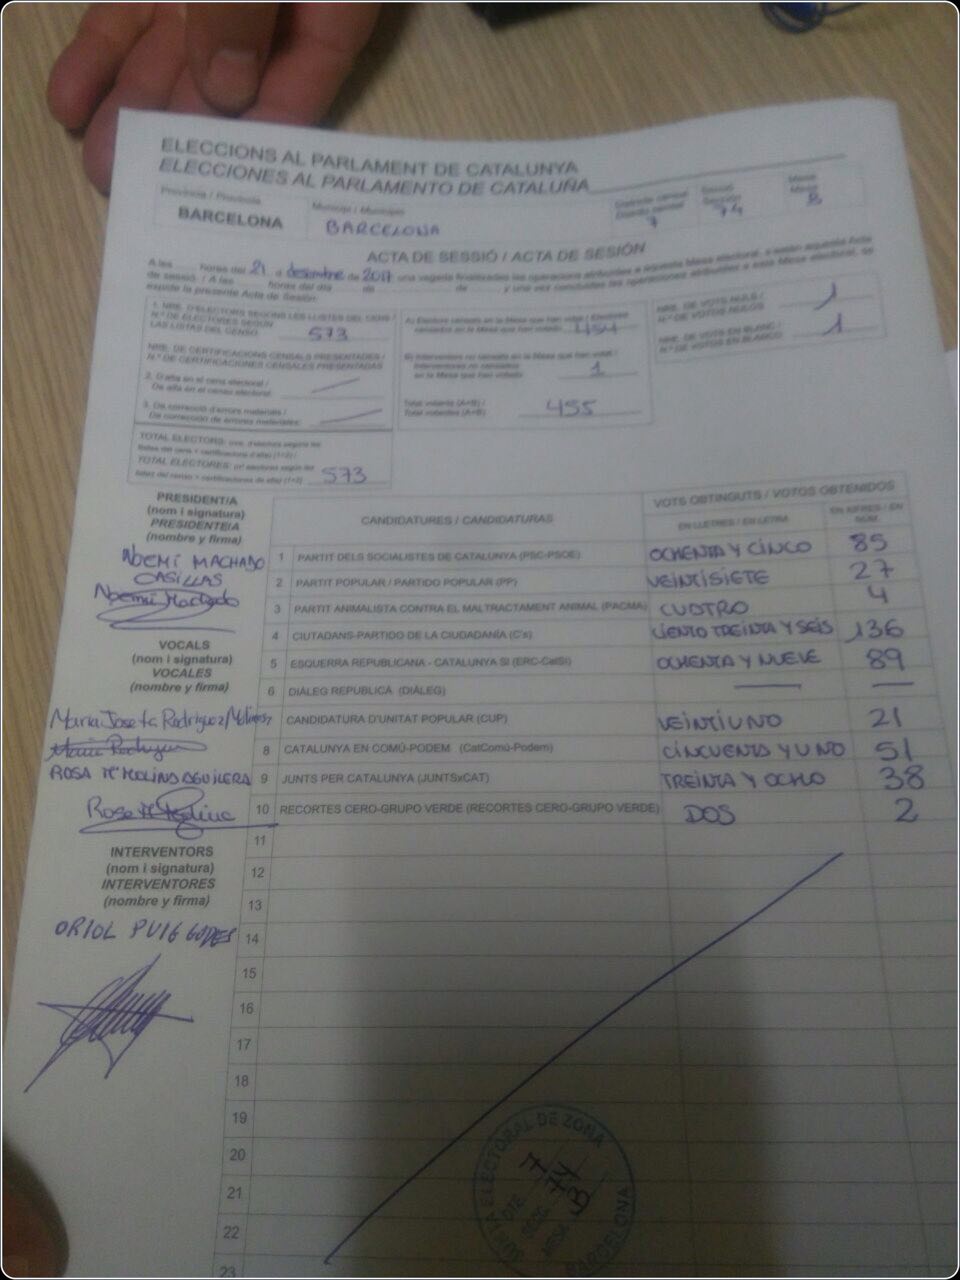 ELECCIONS AL PARLAMENT DE CATALUNYA
ELECCIONES AL PARLAMENTO DE CATALUÑA
Província / Provincia
BARCELONA
Municipi / Municipio
BARCELONA
Districte censal
Distrito censal
7
Secció
Sección
74
Mesa
Mesa
B
ACTA DE SESSIÓ / ACTA DE SESIÓN
A les ...... hores del 21 d desembre de 2017 una vegada finalitzades les operacions atribuïdes a aquesta Mesa electoral, s'estén aquesta Acta
de sessió. / A las ...... horas del día ...... de ...... de ...... y una vez concluidas las operaciones atribuidas a esta Mesa electoral, se
expide la presente Acta de Sesión.
1. NRE. D'ELECTORS SEGONS LES LLISTES DEL CENS /
N.º DE ELECTORES SEGÚN
LAS LISTAS DEL CENSO 573
NRE. DE CERTIFICACIONS CENSALS PRESENTADES /
N.º DE CERTIFICACIONES CENSALES PRESENTADAS
2. D'alta en el cens electoral /
De alta en el censo electoral:
3. De correcció d'errors materials /
De corrección de errores materiales:
TOTAL ELECTORS:
TOTAL ELECTORES: 573
A) Electors censats en la Mesa que han votat / Electores
censados en la Mesa que han votado 454
B) Interventors no censats en la Mesa que han votat /
Interventores no censados
en la Mesa que han votado 1
Total votants (A+B) /
Total votantes (A+B) 455
NRE. DE VOTS NULS /
N.º DE VOTOS NULOS 1
NRE. DE VOTS EN BLANC /
N.º DE VOTOS EN BLANCO 1
PRESIDENT/A
(nom i signatura)
PRESIDENTE/A
(nombre y firma)
NOEMÍ MACHADO
CASILLAS
Noemí Machado
VOCALS
(nom i signatura)
VOCALES
(nombre y firma)
Maria Josefa Rodriguez
ROSA Mª MOLINS AGUILERA
INTERVENTORS
(nom i signatura)
INTERVENTORES
(nombre y firma)
ORIOL PUIG
CANDIDATURES / CANDIDATURAS
VOTS OBTINGUTS / VOTOS OBTENIDOS
EN LLETRES / EN LETRA
EN XIFRES / EN NÚM.
1 PARTIT DELS SOCIALISTES DE CATALUNYA (PSC-PSOE) OCHENTA Y CINCO 85
2 PARTIT POPULAR / PARTIDO POPULAR (PP) VEINTISIETE 27
3 PARTIT ANIMALISTA CONTRA EL MALTRACTAMENT ANIMAL (PACMA) CUATRO 4
4 CIUTADANS-PARTIDO DE LA CIUDADANÍA (C's) CIENTO TREINTA Y SEIS 136
5 ESQUERRA REPUBLICANA - CATALUNYA SÍ (ERC-CatSí) OCHENTA Y NUEVE 89
6 DIÀLEG REPUBLICÀ (DIÀLEG) — —
7 CANDIDATURA D'UNITAT POPULAR (CUP) VEINTIUNO 21
8 CATALUNYA EN COMÚ-PODEM (CatComú-Podem) CINCUENTA Y UNO 51
9 JUNTS PER CATALUNYA (JUNTSxCAT) TREINTA Y OCHO 38
10 RECORTES CERO-GRUPO VERDE (RECORTES CERO-GRUPO VERDE) DOS 2
11
12
13
14
15
16
17
18
19
20
21
22
23
JUNTA ELECTORAL DE ZONA
DTE. 7
SECC. 74
MESA B
BARCELONA